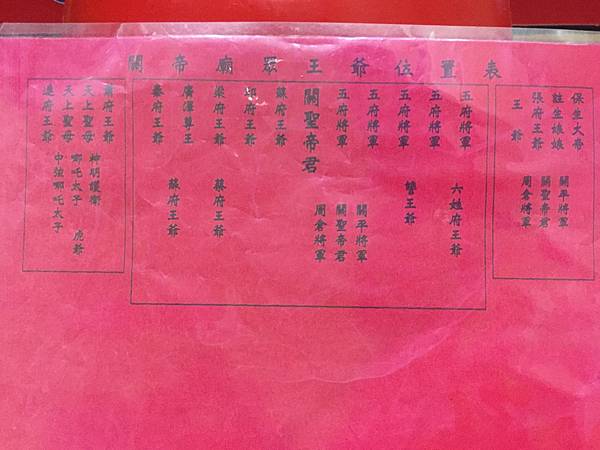 關帝廟眾王爺位置表
保生大帝
註生娘娘
張府王爺
王爺
關平將軍
關聖帝君
周倉將軍
五府將軍
五府將軍
五府將軍
五府將軍
五府將軍
關聖帝君
府王爺
府王爺
梁府王爺
廣澤尊王
秦府王爺
六姓府王爺
王爺
關平將軍
關聖帝君
周倉將軍
蔡府王爺
蘇府王爺
府王爺
天上聖母
天上聖母
連府王爺
神明護衛
哪吒太子
中強哪吒太子
虎爺